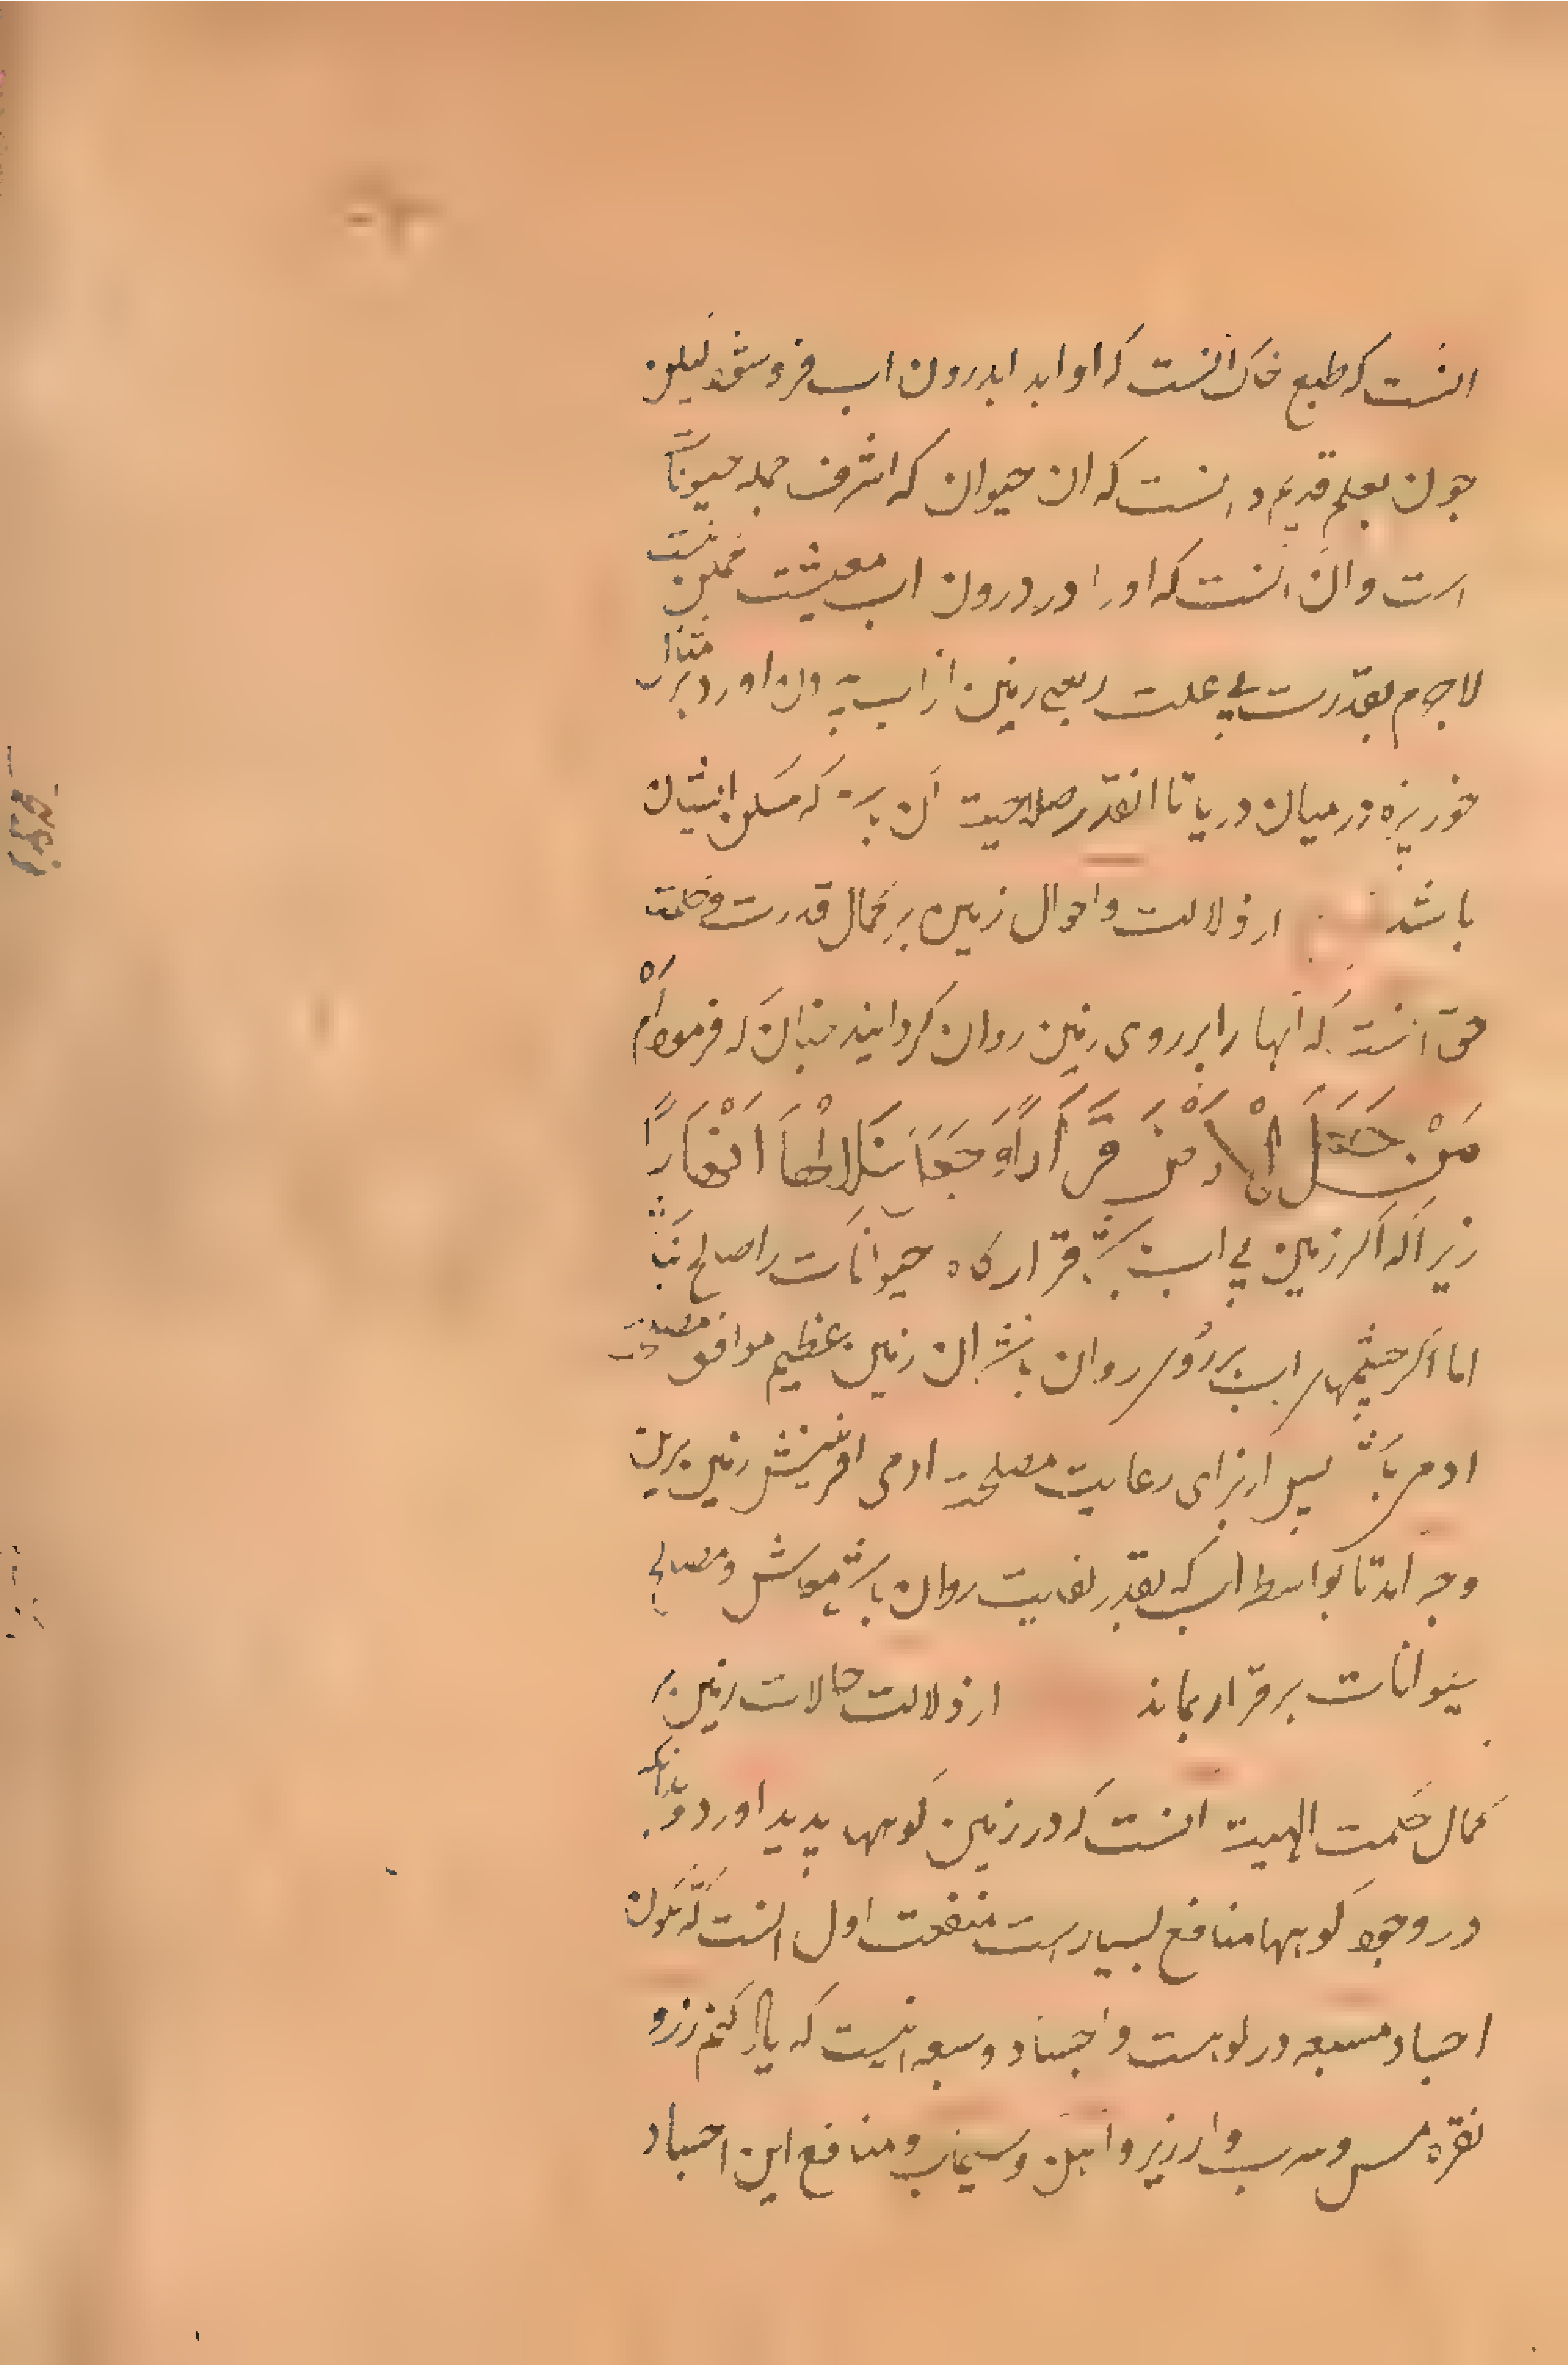 انست که طبع خاک انست که او اندر درون اب فرو شود لیکن
چون بعلم قدیم دانست که ان حیوان که اشرف جمله حیوانات
است وان انست که اورا در درون اب معیشت ممکن نیست
لاجرم بقدرت بی علت ربعی زمین از اب بیرون اورد بر مثال
جزیره در میان دریا تا انقدر صلاحیت ان باشد که مسکن ایشان
باشد از دلالت واحوال زمین بر کمال قدرت وحکمت
حق انست که ابها را بر روی زمین روان گردانید چنانک فرمود ام
مَنْ جَعَلَ الْاَرْضَ قَرَاراً وَجَعَلَ خِلَالَهَا اَنْهَاراً
زیرا که اگر زمین بی اب باشد قرارگاه حیوانات را صالح نباشد
اما اگر چشمهای اب بر روی روان باشد ان زمین عظیم موافق مصلحت
ادمی باشد پس از برای رعایت مصلحت ادمی افرینش زمین برین
وجه امد تا بواسطه اب که بقدر کفایت روان باشد معاش ومصالح
حیوانات برقرار بماند از دلالت حالات زمین بر
کمال حکمت الهیت انست که در زمین کوهها پدید اورد وبدانکه
در وجود کوهها منافع بسیارست منفعت اول انست که تکون
اجساد سبعه در کوهست واجساد سبعه انیست که یاد کنم زر و
نقره مس وسرب وارزیز واهن وسیماب ومنافع این اجساد